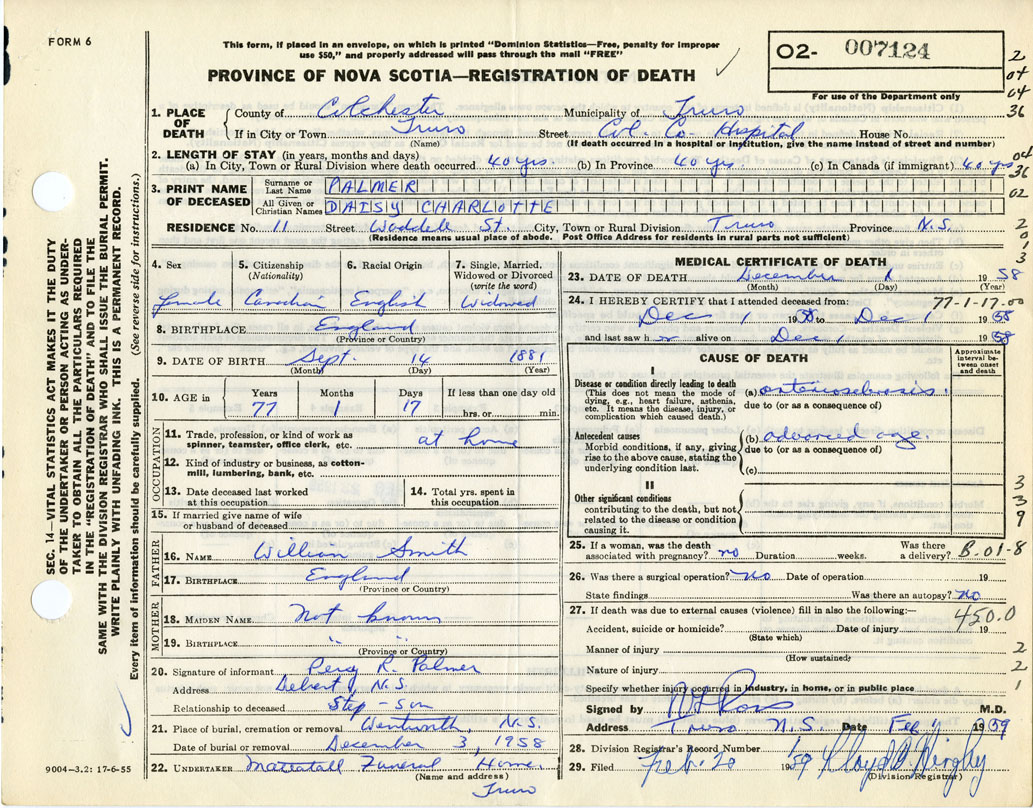 FORM 6
This form, if placed in an envelope, on which is printed "Dominion Statistics—Free, penalty for improper
use $50," and properly addressed will pass through the mail "FREE"
PROVINCE OF NOVA SCOTIA—REGISTRATION OF DEATH
02- 007124
For use of the Department only
2
04
04
36
1. PLACE OF DEATH
County of Colchester Municipality of Truro
If in City or Town Truro Street Col. Co. Hospital House No.
(Name) (If death occurred in a hospital or institution, give the name instead of street and number)
2. LENGTH OF STAY (in years, months and days)
(a) In City, Town or Rural Division where death occurred 40 yrs. (b) In Province 40 yrs. (c) In Canada (if immigrant) 40 yrs.
04
36
02
2
0
1
3
3. PRINT NAME OF DECEASED
Surname or Last Name PALMER
All Given or Christian Names DAISY CHARLOTTE
RESIDENCE No. 11 Street Waddell St. City, Town or Rural Division Truro Province N.S.
(Residence means usual place of abode. Post Office Address for residents in rural parts not sufficient)
4. Sex 5. Citizenship (Nationality) 6. Racial Origin 7. Single, Married, Widowed or Divorced (write the word)
Female Canadian English Widowed
8. BIRTHPLACE England
(Province or Country)
9. DATE OF BIRTH Sept. 14 1881
(Month) (Day) (Year)
10. AGE in Years Months Days If less than one day old
77 1 17 hrs. or min.
OCCUPATION
11. Trade, profession, or kind of work as spinner, teamster, office clerk, etc. at home
12. Kind of industry or business, as cotton-mill, lumbering, bank, etc.
13. Date deceased last worked at this occupation
14. Total yrs. spent in this occupation
15. If married give name of wife or husband of deceased
FATHER
16. NAME William Smith
17. BIRTHPLACE England
(Province or Country)
MOTHER
18. MAIDEN NAME Not known
19. BIRTHPLACE " "
(Province or Country)
20. Signature of informant Percy R. Palmer
Address Debert, N.S.
Relationship to deceased Step-son
21. Place of burial, cremation or removal Wentworth N.S.
Date of burial or removal December 3, 1958
22. UNDERTAKER Mattatall Funeral Home.
(Name and address)
Truro
MEDICAL CERTIFICATE OF DEATH
23. DATE OF DEATH December 1 1958
(Month) (Day)
24. I HEREBY CERTIFY that I attended deceased from: 77-1-17.00
Dec 1 1958 to Dec 1 1958
and last saw her alive on Dec 1 1958
CAUSE OF DEATH
Approximate interval between onset and death
I
Disease or condition directly leading to death
(This does not mean the mode of dying, e.g., heart failure, asthenia, etc. It means the disease, injury, or complication which caused death.)
(a) arteriosclerosis.
due to (or as a consequence of)
Antecedent causes
Morbid conditions, if any, giving rise to the above cause, stating the underlying condition last.
(b) advanced age.
due to (or as a consequence of)
(c)
II
Other significant conditions
contributing to the death, but not related to the disease or condition causing it.
3
3
9
25. If a woman, was the death associated with pregnancy? no Duration weeks. Was there a delivery? B.01-8
26. Was there a surgical operation? no Date of operation 19
State findings Was there an autopsy? no
27. If death was due to external causes (violence) fill in also the following:— 450.0
Accident, suicide or homicide? Date of injury 19
(State which)
Manner of injury 2
(How sustained)
Nature of injury 2
Specify whether injury occurred in industry, in home, or in public place 1
Signed by Ross M.D.
Address Truro N.S. Date Feb 1959
28. Division Registrar's Record Number
29. Filed Feb. 20 1959 Lloyd
(Division Registrar)
SEC. 14—VITAL STATISTICS ACT MAKES IT THE DUTY
OF THE UNDERTAKER OR PERSON ACTING AS UNDER-
TAKER TO OBTAIN ALL THE PARTICULARS REQUIRED
IN THE "REGISTRATION OF DEATH" AND TO FILE THE
SAME WITH THE DIVISION REGISTRAR WHO SHALL ISSUE THE BURIAL PERMIT.
WRITE PLAINLY WITH UNFADING INK. THIS IS A PERMANENT RECORD.
Every item of information should be carefully supplied. (See reverse side for instructions.)
9004—3.2: 17-6-55